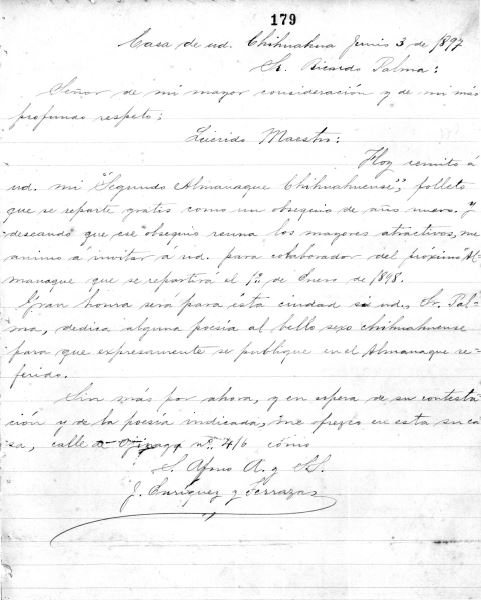 179
Casa de ud. Chihuahua Junio 3 de 1897
Sr. Ricardo Palma:
Señor de mi mayor consideración y de mi más
profundo respeto:
Querido Maestro:
Hoy remito á
ud. mi "Segundo Almanaque Chihuahuense", folleto
que se reparte gratis como un obsequio de año nuevo. Y
deseando que ese obsequio reuna los mayores atractivos, me
animo á invitar á ud. para colaborador del próximo Al-
manaque que se repartirá el 1º de Enero de 1898.
Gran honra será para ésta ciudad si ud., Sr. Pal-
ma, dedica alguna poesía al bello sexo chihuahuense
para que expresamente se publique en el Almanaque re-
ferido.
Sin más por ahora, y en espera de su contesta-
ción y de la poesía indicada, me ofrezco en esta su ca-
sa, calle Ojinaga nº 416 cómo
S. Afmo A. y SS.
J. Enríquez y Terrazas